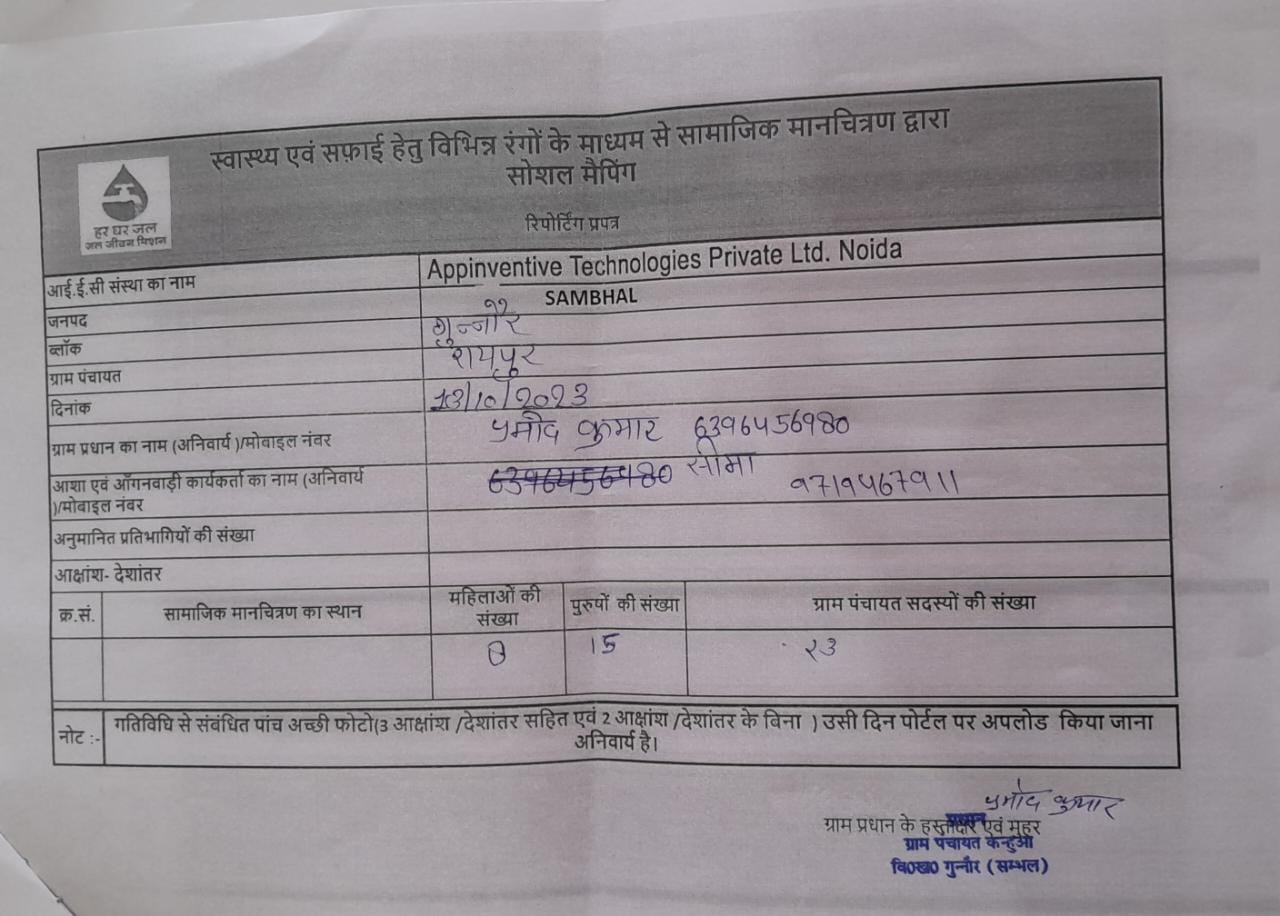 स्वास्थ्य एवं सफ़ाई हेतु विभिन्न रंगों के माध्यम से सामाजिक मानचित्रण द्वारा
सोशल मैपिंग
रिपोर्टिंग प्रपत्र
हर घर जल
जल जीवन मिशन
आई.ई.सी संस्था का नाम Appinventive Technologies Private Ltd. Noida
जनपद SAMBHAL
ब्लॉक गुन्नौर
ग्राम पंचायत रायपुर
दिनांक 13/10/2023
ग्राम प्रधान का नाम (अनिवार्य )/मोबाइल नंबर प्रमोद कुमार 6396456980
आशा एवं आँगनवाड़ी कार्यकर्ता का नाम (अनिवार्य
)/मोबाइल नंबर सीमा ९719467911
अनुमानित प्रतिभागियों की संख्या
आक्षांश- देशांतर
क्र.सं. सामाजिक मानचित्रण का स्थान महिलाओं की संख्या पुरुषों की संख्या ग्राम पंचायत सदस्यों की संख्या
15 २३
नोट :- गतिविधि से संबंधित पांच अच्छी फोटो(3 आक्षांश /देशांतर सहित एवं 2 आक्षांश /देशांतर के बिना ) उसी दिन पोर्टल पर अपलोड किया जाना
अनिवार्य है।
प्रमोद कुमार
ग्राम प्रधान के हस्ताक्षर एवं मुहर
ग्राम पंचायत केन्हुआ
वि0ख0 गुन्नौर (सम्भल)